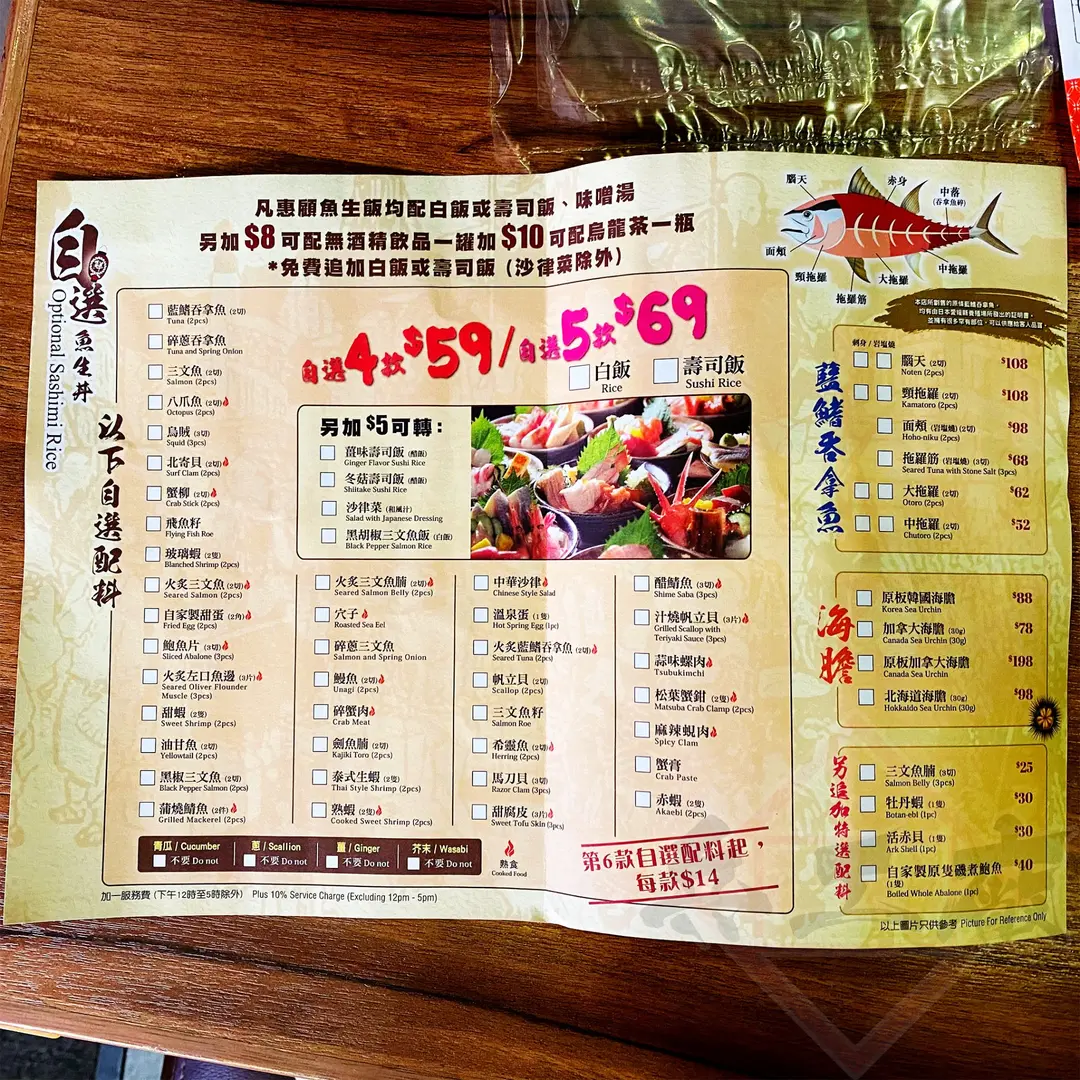 自選
魚生丼
Optional Sashimi Rice
以下自選配料
凡惠顧魚生飯均配白飯或壽司飯、味噌湯
另加$8可配無酒精飲品一罐加$10可配烏龍茶一瓶
*免費追加白飯或壽司飯 (沙律菜除外)
自選4款$59/自選5款$69
白飯
Rice
壽司飯
Sushi Rice
另加$5可轉：
薑味壽司飯 (醋飯)
Ginger Flavor Sushi Rice
冬菇壽司飯 (醋飯)
Shiitake Sushi Rice
沙律菜 (和風汁)
Salad with Japanese Dressing
黑胡椒三文魚飯 (白飯)
Black Pepper Salmon Rice
藍鰭吞拿魚 (2切)
Tuna (2pcs)
碎蔥吞拿魚
Tuna and Spring Onion
三文魚 (2切)
Salmon (2pcs)
八爪魚 (2切)
Octopus (2pcs)
烏賊 (3切)
Squid (3pcs)
北寄貝 (2切)
Surf Clam (2pcs)
蟹柳 (2切)
Crab Stick (2pcs)
飛魚籽
Flying Fish Roe
玻璃蝦 (2隻)
Blanched Shrimp (2pcs)
火炙三文魚 (2切)
Seared Salmon (2pcs)
自家製甜蛋 (2角)
Fried Egg (2pcs)
鮑魚片 (3切)
Sliced Abalone (3pcs)
火炙左口魚邊 (3片)
Seared Oliver Flounder
Muscle (3pcs)
甜蝦 (2隻)
Sweet Shrimp (2pcs)
油甘魚 (2切)
Yellowtail (2pcs)
黑椒三文魚 (2切)
Black Pepper Salmon (2pcs)
蒲燒鯖魚 (2件)
Grilled Mackerel (2pcs)
火炙三文魚腩 (2切)
Seared Salmon Belly (2pcs)
穴子
Roasted Sea Eel
碎蔥三文魚
Salmon and Spring Onion
鰻魚 (2切)
Unagi (2pcs)
碎蟹肉
Crab Meat
劍魚腩 (2切)
Kajiki Toro (2pcs)
泰式生蝦 (2隻)
Thai Style Shrimp (2pcs)
熟蝦 (2隻)
Cooked Sweet Shrimp (2pcs)
中華沙律
Chinese Style Salad
溫泉蛋 (1隻)
Hot Spring Egg (1pc)
火炙藍鰭吞拿魚 (2切)
Seared Tuna (2pcs)
帆立貝 (2切)
Scallop (2pcs)
三文魚籽
Salmon Roe
希靈魚 (2切)
Herring (2pcs)
馬刀貝 (3切)
Razor Clam (3pcs)
甜腐皮 (3片)
Sweet Tofu Skin (3pcs)
醋鯖魚 (3切)
Shime Saba (3pcs)
汁燒帆立貝 (3片)
Grilled Scallop with
Teriyaki Sauce (3pcs)
蒜味螺肉
Tsubukimchi
松葉蟹鉗 (2隻)
Matsuba Crab Clamp (2pcs)
麻辣蜆肉
Spicy Clam
蟹膏
Crab Paste
赤蝦 (2隻)
Akaebi (2pcs)
第6款自選配料起，
每款$14
青瓜 / Cucumber
不要 Do not
蔥 / Scallion
不要 Do not
薑 / Ginger
不要 Do not
芥末 / Wasabi
不要 Do not
熟食
Cooked Food
加一服務費 (下午12時至5時除外) Plus 10% Service Charge (Excluding 12pm - 5pm)
腦天
赤身
中落
(吞拿魚碎)
面頰
頸拖羅
拖羅筋
大拖羅
中拖羅
藍鰭吞拿魚
刺身 / 岩塩燒
腦天 (2切) $108
Noten (2pcs)
頸拖羅 (2切) $108
Kamatoro (2pcs)
面頰 (岩塩燒) (2切) $98
Hoho-niku (2pcs)
拖羅筋 (岩塩燒) (3切) $68
Seared Tuna with Stone Salt (3pcs)
大拖羅 (2切) $62
Otoro (2pcs)
中拖羅 (2切) $52
Chutoro (2pcs)
海膽
原板韓國海膽 $88
Korea Sea Urchin
加拿大海膽 (30g) $78
Canada Sea Urchin (30g)
原板加拿大海膽 $198
Canada Sea Urchin
北海道海膽 (30g) $98
Hokkaido Sea Urchin (30g)
另追加特選配料
三文魚腩 (3切) $25
Salmon Belly (3pcs)
牡丹蝦 (1隻) $30
Botan-ebi (1pc)
活赤貝 (1隻) $30
Ark Shell (1pc)
自家製原隻磯煮鮑魚 $40
(1隻)
Boiled Whole Abalone (1pc)
以上圖片只供參考 Picture For Reference Only